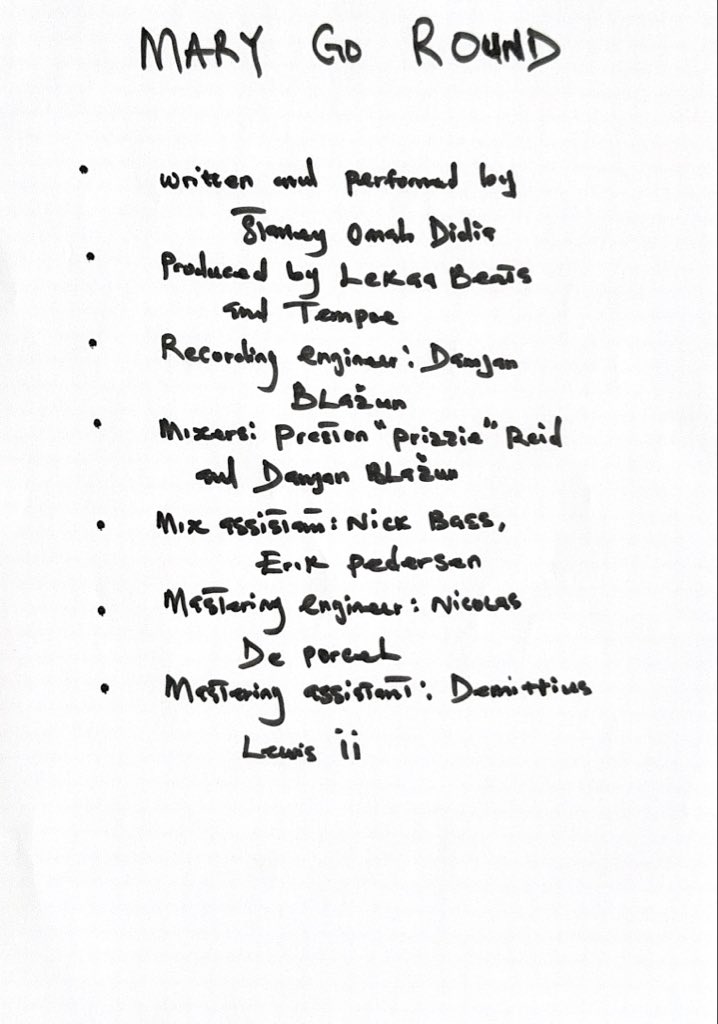 MARY GO ROUND
• written and performed by
Stanley Omah Didia
• Produced by Lekaa Beats
and Tempoe
• Recording engineer: Damjan
Blažun
• Mixers: Preston "prizzie" Reid
and Damjan Blažun
• Mix assistant: Nick Bass,
Erik pedersen
• Mastering engineer: Nicolas
De porcel
• Mastering assistant: Demittius
Lewis ii